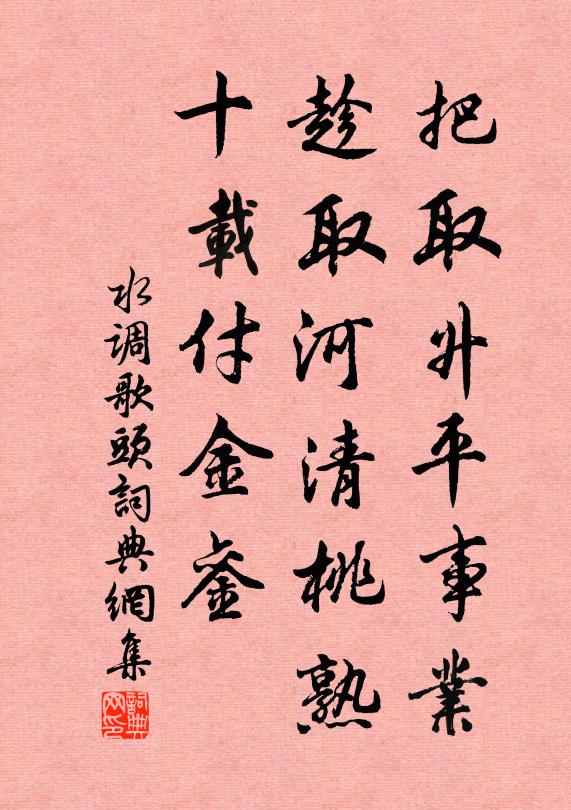 把取升平事業
趁取河清桃熟
十載付金銮
水调歌頭詞典網集
詞典网印